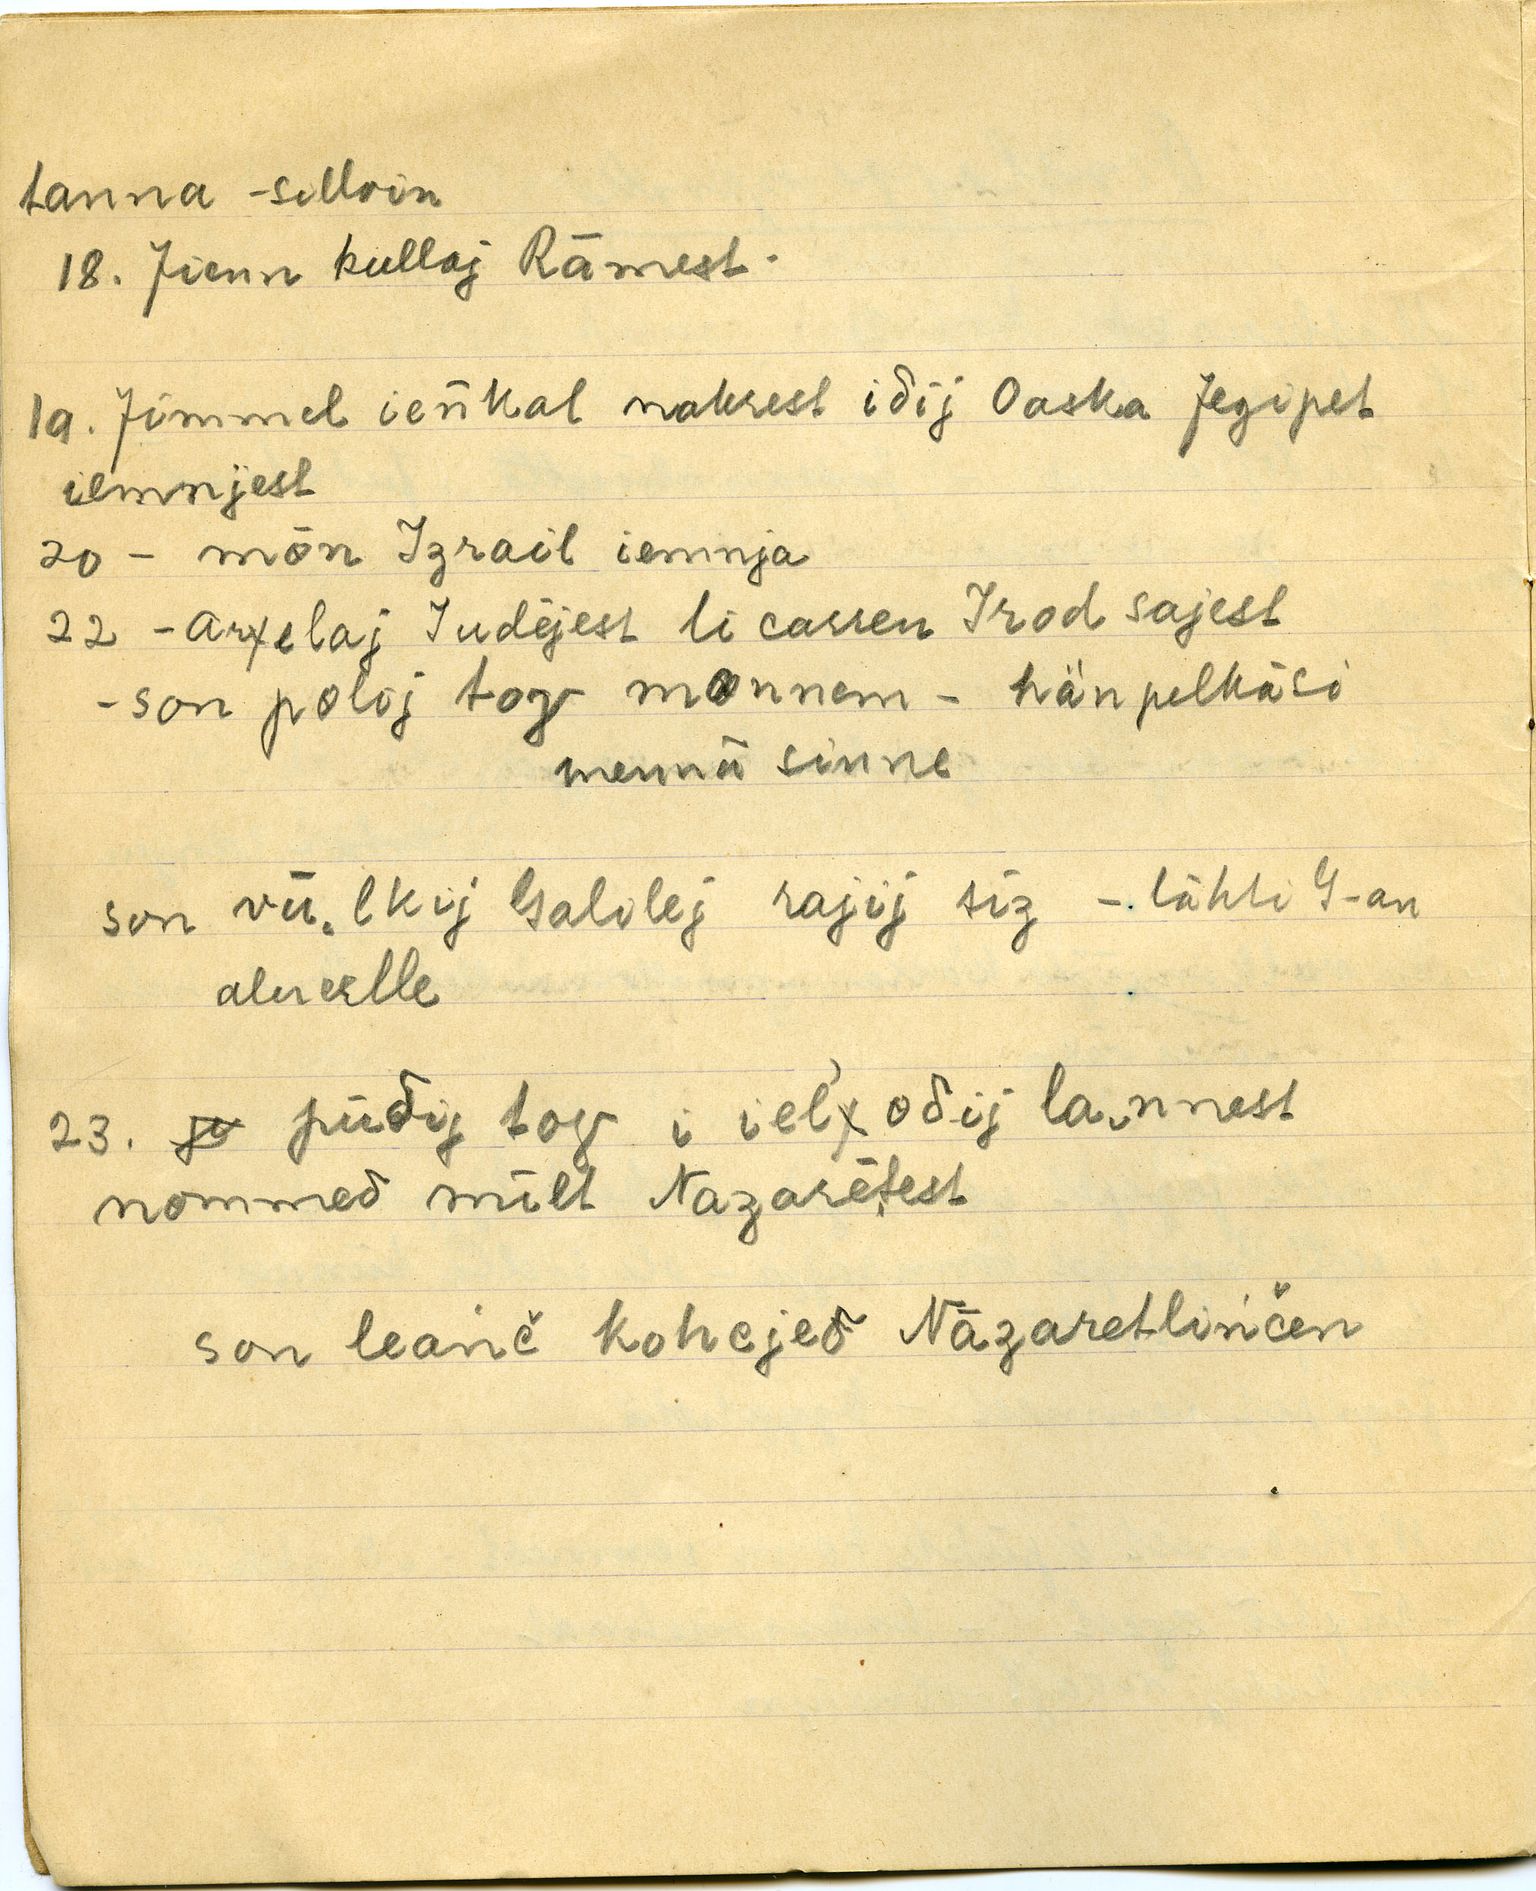 tanna - silloin
18. Jienn kulloj Rāmest.
19. Jimmel ieńkal nakrest iδij Oaska Jegipet
iemnjest
20 - mōn Izrail iemnja
22 - Arχelaj Iudējest li carren Irod sajest
- son poloj tog monnem - hän pelkäsi
mennä sinne
son vūlkij Galilej rajij siz - lähti G-an
alueelle
23. pūδij tog i ielχoδij lannest
nommeδ mīlt Nazarētest
son leańč kohcjeδ Nāzaretlińčen